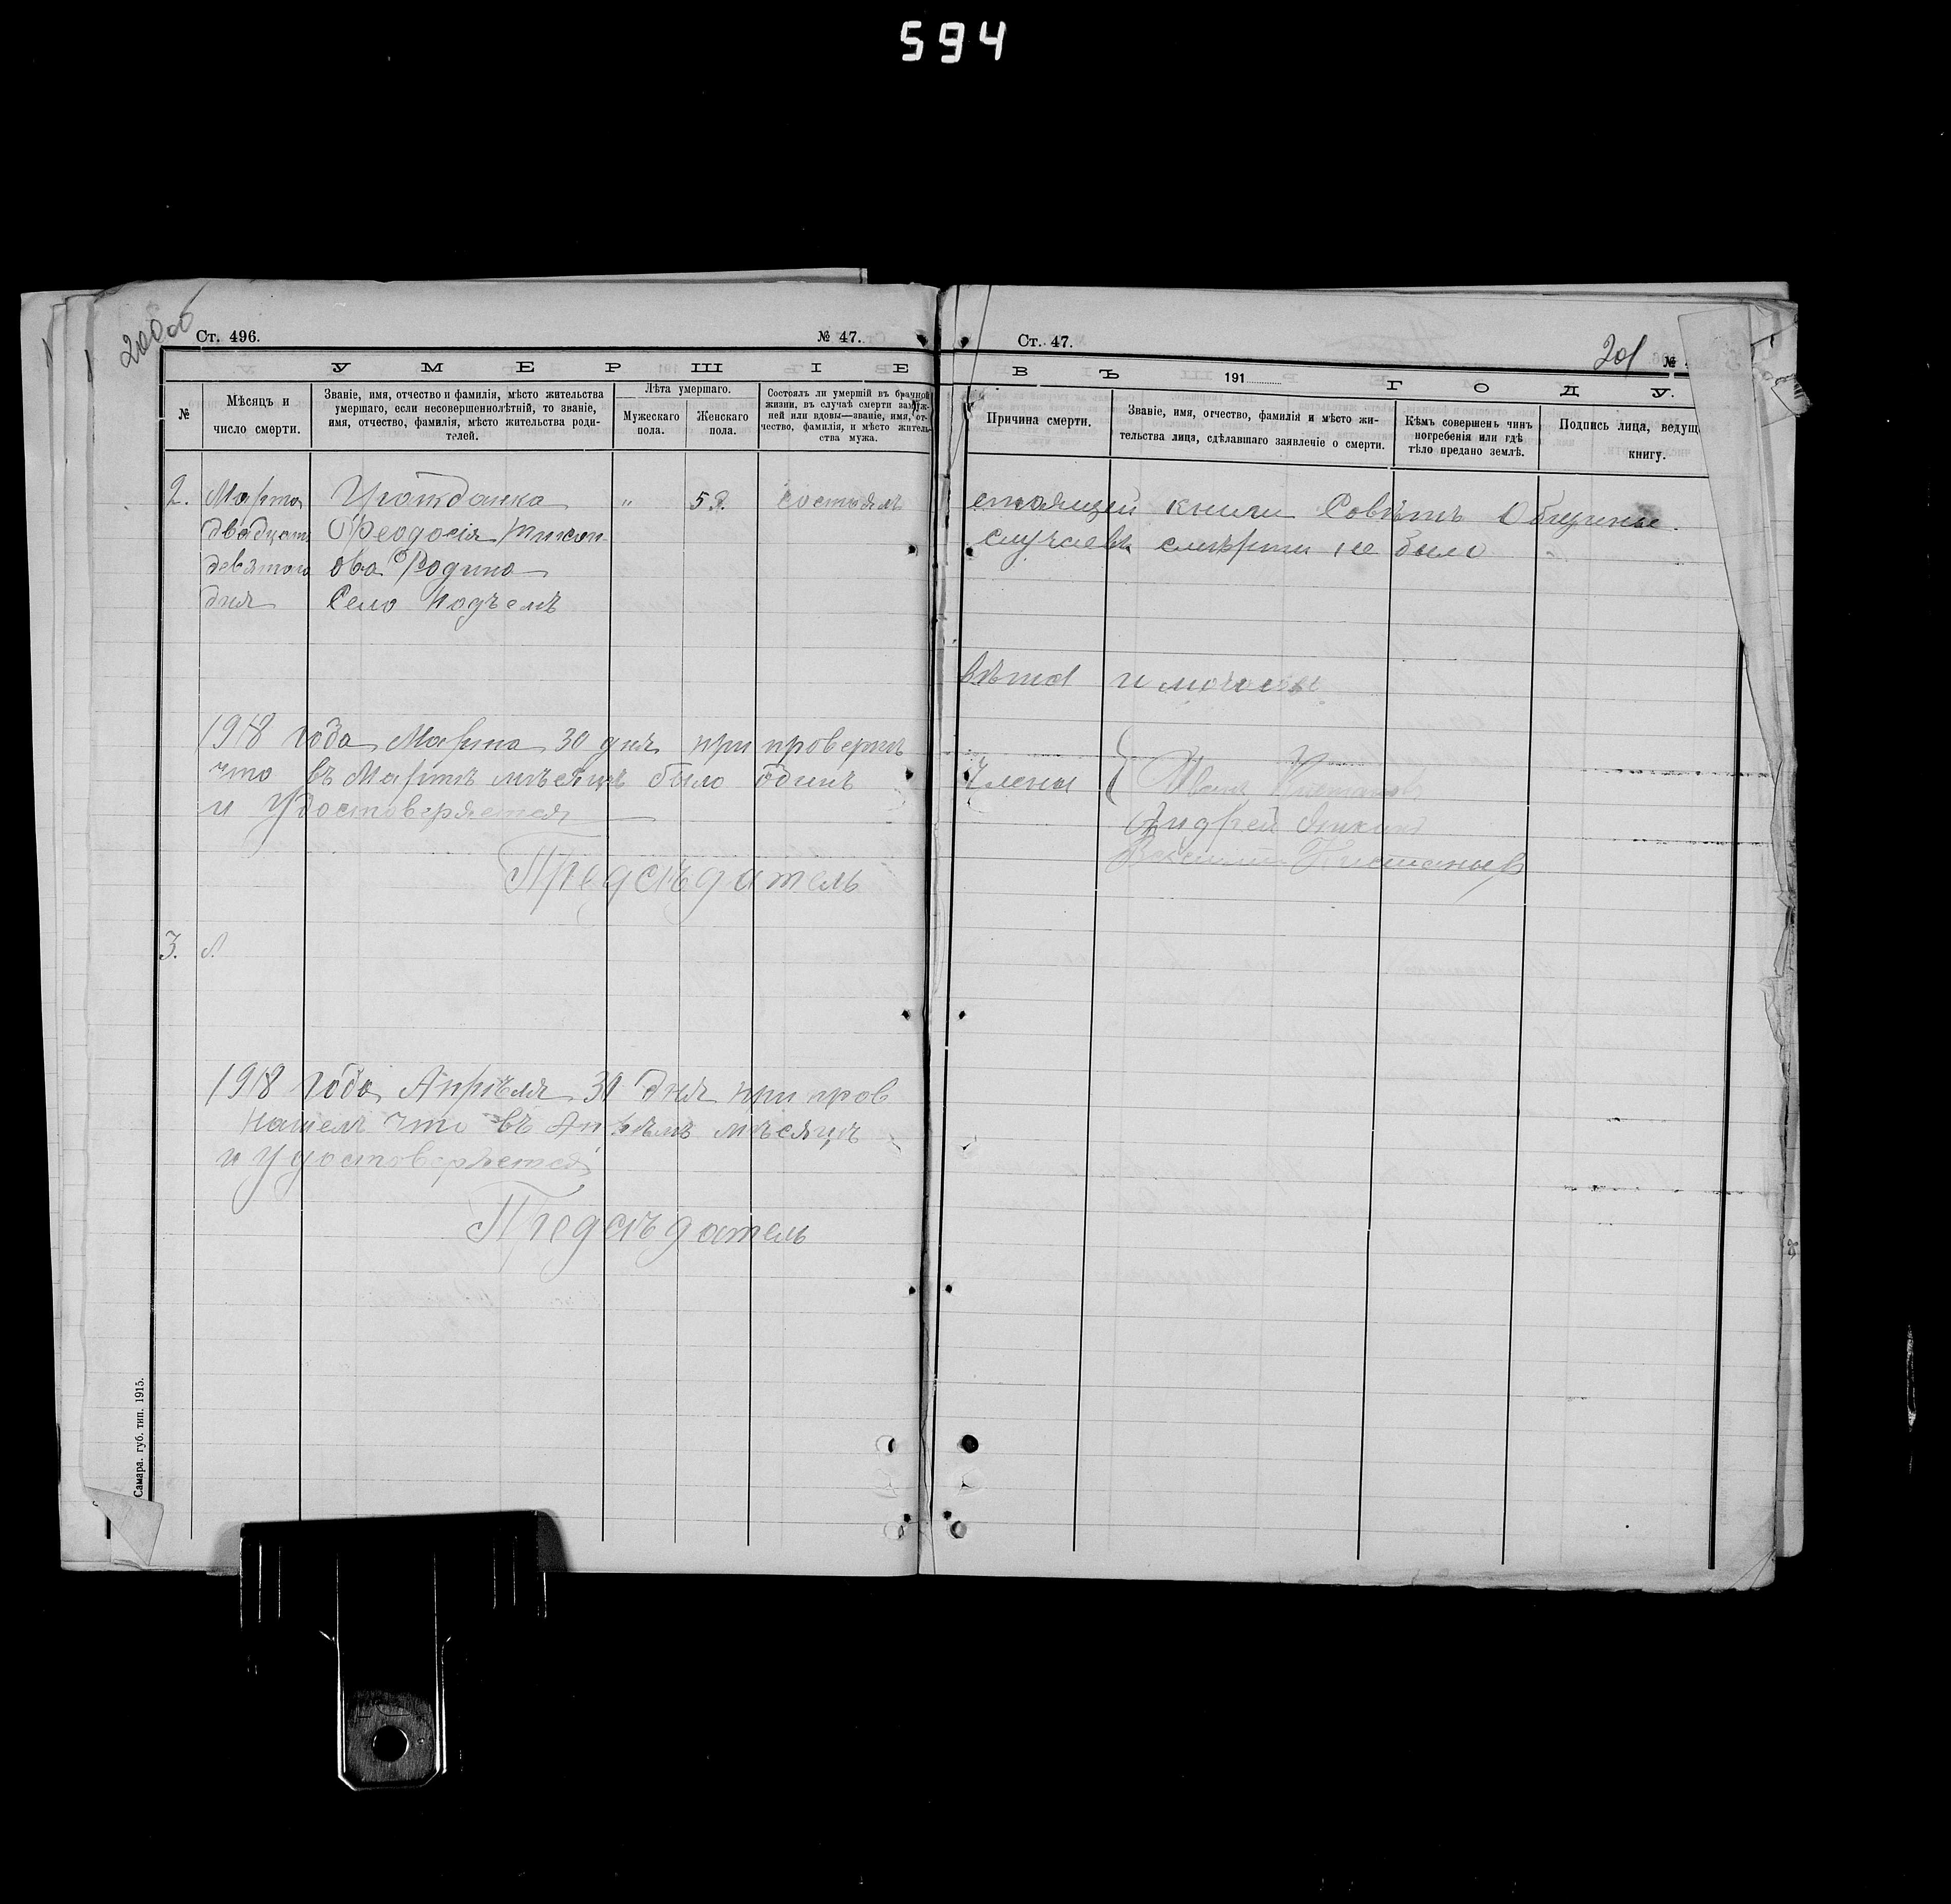 594
200об
Ст. 496.
№ 47.
УМЕРШІЕ
№
Мѣсяцъ и
число смерти.
Званіе, имя, отчество и фамилія, мѣсто жительства
умершаго, если несовершеннолѣтній, то званіе,
имя, отчество, фамилія, мѣсто жительства роди-
телей.
Лѣта умершаго.
Мужескаго
пола.
Женскаго
пола.
Состоялъ ли умершій въ брачной
жизни, въ случаѣ смерти замуж-
ней или вдовы—званіе, имя, от-
чество, фамилія, и мѣсто житель-
ства мужа.
2.
Марта
двадцать
девятого
дня
Гражданка
Феодосія Тихон
ова Родина
Село Подъемъ
"
53.
состоялъ
1918 года Марта 30 дня при проверкѣ
что въ Мартѣ мѣсяцѣ было одинъ
и Удостоверяется
Предсѣдатель
3.
1918 года Апрѣля 30 дня при пров
нашелъ что въ Апрѣлѣ мѣсяцѣ
и Удостоверяется
Предсѣдатель
Самара. губ. тип. 1915.
Ст. 47.
201
№
ВЪ 191 ГОДУ.
Причина смерти.
Званіе, имя, отчество, фамилія и мѣсто жи-
тельства лица, сдѣлавшаго заявленіе о смерти.
Кѣмъ совершенъ чинъ
погребенія или гдѣ
тѣло предано землѣ.
Подпись лица, ведущ
книгу.
стоящей книги Совѣтъ Общины
случаевъ смерти не было
Члены
Андрей